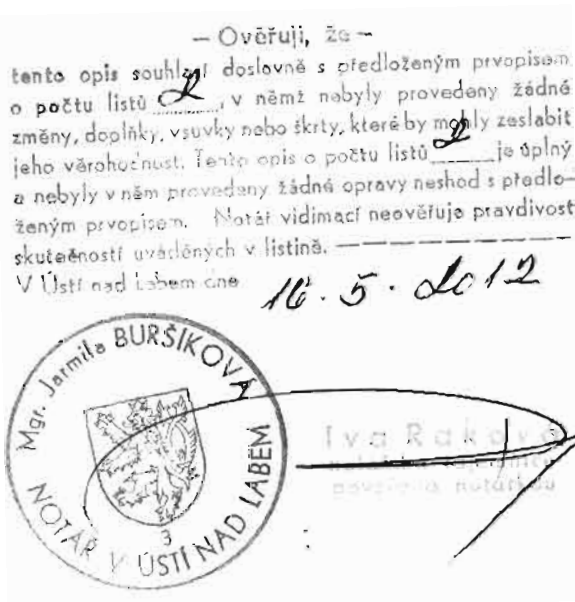 — Ověřuji, že —
tento opis souhlasí doslovně s předloženým prvopisem
o počtu listů 2, v němž nebyly provedeny žádné
změny, doplňky, vsuvky nebo škrty, které by mohly zeslabit
jeho věrohodnost. Tento opis o počtu listů 2 je úplný
a nebyly v něm provedeny žádné opravy neshod s předlo-
ženým prvopisem. Notář vidimací neověřuje pravdivost
skutečností uváděných v listině. —
V Ústí nad Labem dne 16. 5. 2012
Mgr. Jarmila BURŠÍKOVÁ
NOTÁŘ V ÚSTÍ NAD LABEM
3
Iva Raková
notářská tajemnice
pověřená notářkou